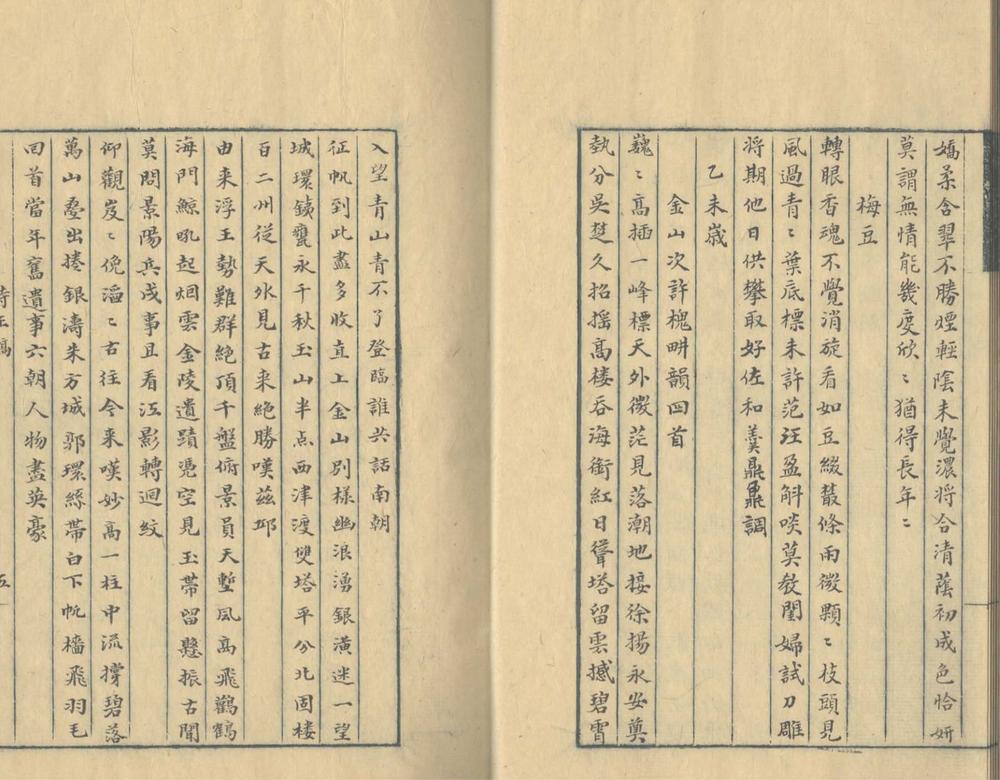 嬌柔含翠不勝煙輕陰未覺濃将合清蔭初成色恰妍
莫謂無情能幾度欣〻猶得長年〻
梅豆
轉眼香魂不覺消旋看如豆綴叢條雨微顆〻枝頭見
風過青〻葉底標未許范汪盈斛啖莫教閨婦試刀雕
将期他日供攀取好佐和羹鼎鼐調
乙未歲
金山次許槐畊韻四首
巍〻高插一峰標天外微茫見落潮地接徐揚永安奠
熱分吳楚久招摇高楼吞海銜紅日聳塔留雲撼碧霄
入望青山青不了登臨誰共話南朝
征帆到此盡多收直上金山别樣幽浪湧銀潢迷一望
城環鐵甕永千秋玉山半点西津渡雙塔平分北固楼
百二州從天外見古来絶勝嘆兹邱
由来浮玉勢難群絶頂千盤俯景員天塹風高飛鸛鶴
海門鯨吼起烟雲金陵遺蹟憑空見玉帶留懸振古聞
莫問景陽兵戍事且看江影轉迴紋
仰觀岌〻俛滔〻古往今来嘆妙高一柱中流撐碧落
萬山叠出捲銀濤朱方城郭環絲帶白下帆檣飛羽毛
回首當年奮遺事六朝人物盡英豪
五